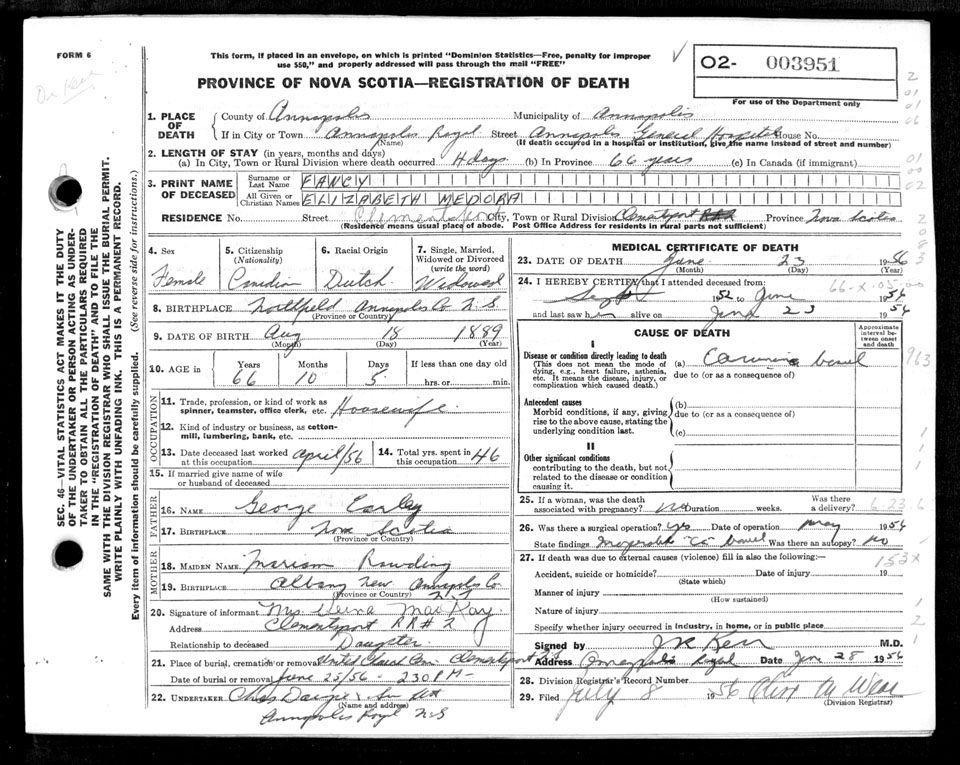 FORM 6
This form, if placed in an envelope, on which is printed "Dominion Statistics—Free, penalty for improper
use $50," and properly addressed will pass through the mail "FREE"
O2- 003951
PROVINCE OF NOVA SCOTIA—REGISTRATION OF DEATH
For use of the Department only
1. PLACE OF DEATH
County of Annapolis Municipality of Annapolis
If in City or Town Annapolis Royal Street Annapolis General Hospital House No.
(Name) (If death occurred in a hospital or institution, give the name instead of street and number)
2. LENGTH OF STAY (in years, months and days)
(a) In City, Town or Rural Division where death occurred 4 days (b) In Province 66 years (c) In Canada (if immigrant)
3. PRINT NAME OF DECEASED
Surname or Last Name FANCY
All Given or Christian Names ELIZABETH MEDORA
RESIDENCE No. Street Clementsport City, Town or Rural Division Clementsport Province Nova Scotia
(Residence means usual place of abode. Post Office Address for residents in rural parts not sufficient)
4. Sex Female
5. Citizenship (Nationality) Canadian
6. Racial Origin Dutch
7. Single, Married, Widowed or Divorced (write the word) Widowed
8. BIRTHPLACE Northfield Annapolis Co N.S.
(Province or Country)
9. DATE OF BIRTH Aug 18 1889
(Month) (Day) (Year)
10. AGE in Years Months Days If less than one day
66 10 5 hrs. or min.
OCCUPATION
11. Trade, profession, or kind of work as
spinner, teamster, office clerk, etc. Housewife
12. Kind of industry or business, as cotton-
mill, lumbering, bank, etc.
13. Date deceased last worked at this occupation April/56
14. Total yrs. spent in this occupation 46
15. If married give name of wife
or husband of deceased
FATHER
16. NAME George Earley
17. BIRTHPLACE Nova Scotia
(Province or Country)
MOTHER
18. MAIDEN NAME Mariam Rawding
19. BIRTHPLACE Albany New Annapolis Co.
(Province or Country) N.S.
20. Signature of informant Mrs MacKay
Address Clementsport RR# 2
Relationship to deceased Daugter
21. Place of burial, cremation or removal United Church Cem Clementsport
Date of burial or removal June 25/56 - 230 PM -
22. UNDERTAKER Chas
(Name and address)
Annapolis Royl N.S
MEDICAL CERTIFICATE OF DEATH
23. DATE OF DEATH June 23 1956
(Month) (Day) (Year)
24. I HEREBY CERTIFY that I attended deceased from:
Sept 1952 to June 1956
and last saw her alive on June 23 1956
CAUSE OF DEATH
Approximate interval between onset and death
I
Disease or condition directly leading to death
(This does not mean the mode of
dying, e.g., heart failure, asthenia,
etc. It means the disease, injury, or
complication which caused death.)
(a) Carcinoma bowel
due to (or as a consequence of)
Antecedent causes
Morbid conditions, if any, giving
rise to the above cause, stating the
underlying condition last.
(b)
due to (or as a consequence of)
(c)
II
Other significant conditions
contributing to the death, but not
related to the disease or condition
causing it.
25. If a woman, was the death associated with pregnancy? No Duration weeks. Was there a delivery?
6-23-6
26. Was there surgical operation? Yes Date of operation May 1956
State findings Inoperable "Ca" bowel Was there an autopsy? No
27. If death was due to external causes (violence) fill in also the following:—
153x
Accident, suicide or homicide? Date of injury 19
(State which)
Manner of injury
(How sustained)
Nature of injury
Specify whether injury occurred in industry, in home, or in public place
Signed by Kerr M.D.
Address Annapolis Royal Date Jun 28 1956
28. Division Registrar's Record Number
29. Filed July 8 1956
(Division Registrar)
SEC. 46—VITAL STATISTICS ACT MAKES IT THE DUTY
OF THE UNDERTAKER OR PERSON ACTING AS UNDER-
TAKER TO OBTAIN ALL THE PARTICULARS REQUIRED
IN THE "REGISTRATION OF DEATH" AND TO FILE THE
SAME WITH THE DIVISION REGISTRAR WHO SHALL ISSUE THE BURIAL PERMIT.
WRITE PLAINLY WITH UNFADING INK. THIS IS A PERMANENT RECORD.
Every item of information should be carefully supplied. (See reverse side for instructions.)